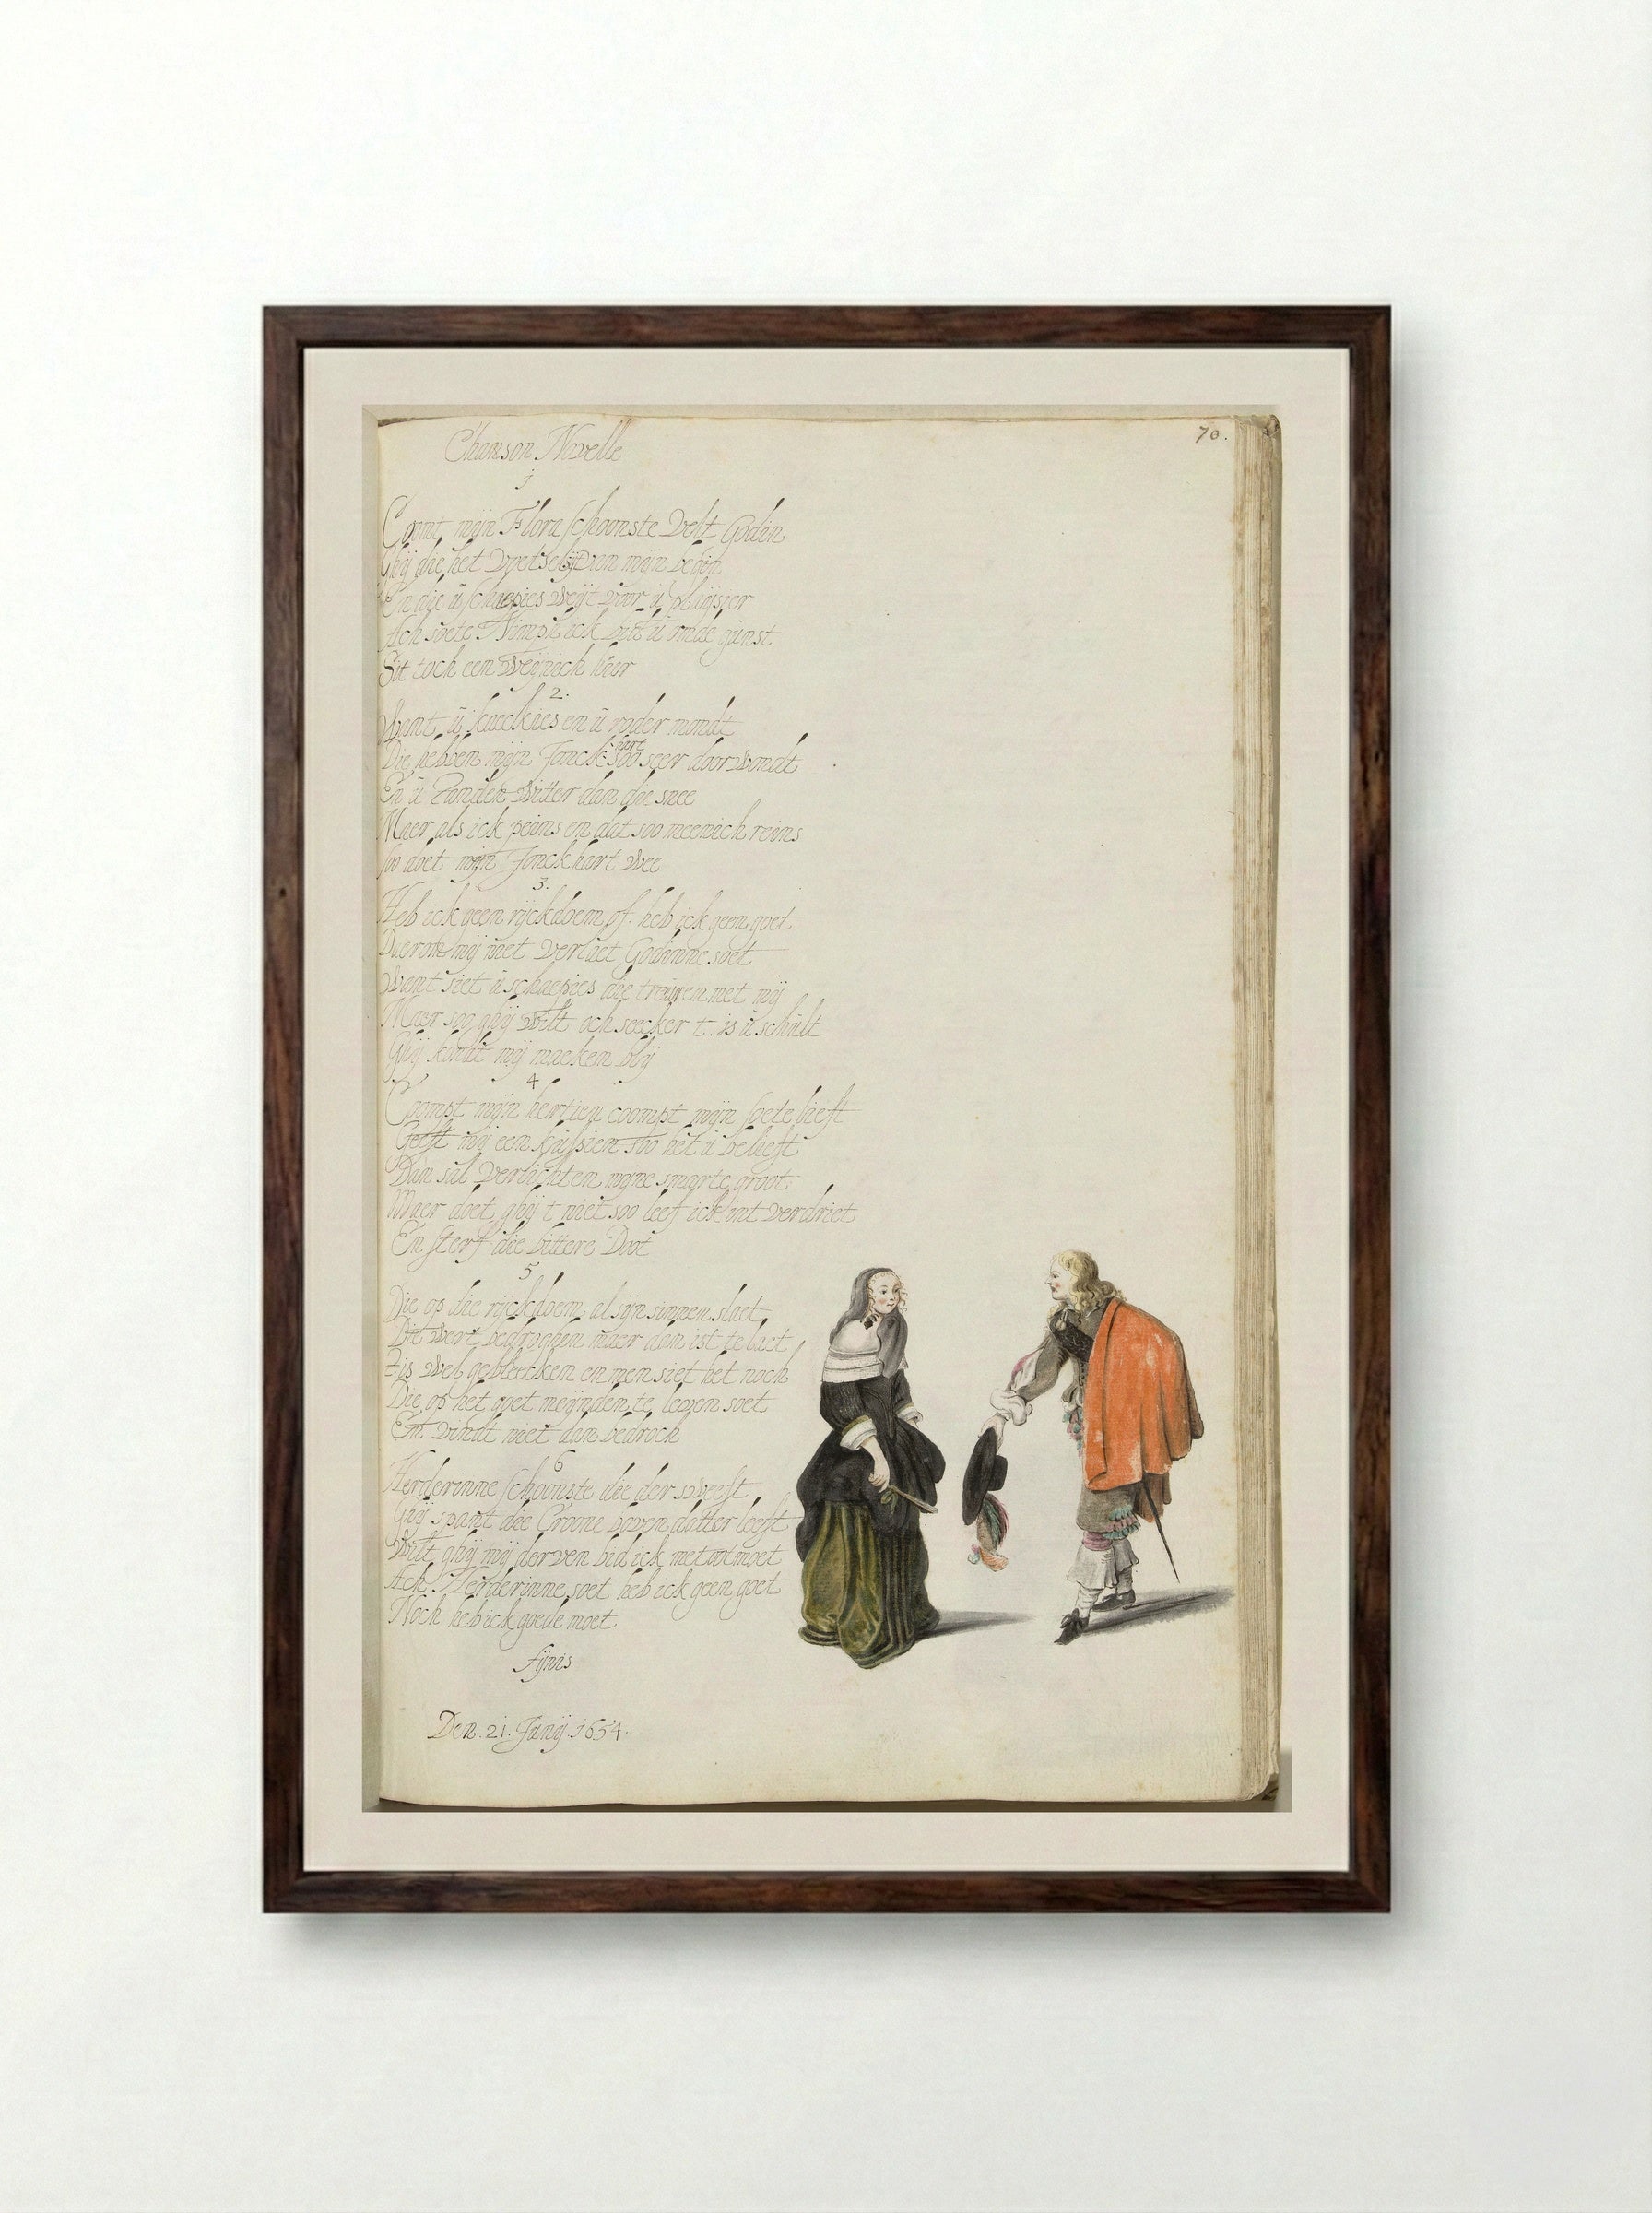 70.
Chanson Novelle
1
Coomt mijn Flora schoonste Velt Godin
Ghij die het van mijn begin
En die u schaepies Weijt Voor u plaijsier
Ach soete Nimph ick bitt u gunst
Sit toch een Weijnich hier
2.
Want u kaeckies en u roder mondt
Die hebben mijn Jonck hart soo seer door Wondt
En u Handen Witter dan die snee
Maer als ick peins en dat soo meenich reins
soo doet mijn Jonck hart Wee
3.
Heb ick geen rijckdoem of heb ick geen goet
Daerom mij niet Verliet Godinne soet
Want siet u schaepies die treuren met mij
Maer soo ghij Wilt och seecker t. is u schult
Ghij kondt mij maeken blij
4
Coompt mijn hertien coompt mijn soete lieft
Geeft mij een kussien soo het u belieft
Dan sal Verlichten mijne smarte groot
Maer doet ghij t niet soo leef ick int Verdriet
En sterf die bittere Doot
5
Die op die rijckdoem al sijn sinnen slaet
Die Wert bedroghen maer dan ist te laet
t. is Wel gebleecken en men siet het noch
Die op het goet meijnden te leven soet
En Vindt niet dan bedroch
6
Herderinne schoonste die der sweeft
Ghij spant dee Croone boven datter leeft
Wilt ghij mij derven bid ick met ootmoet
Ach Herderinne soet heb ick geen goet
Noch heb ick goede moet
fijnis
Den. 21. Junij. 1654.